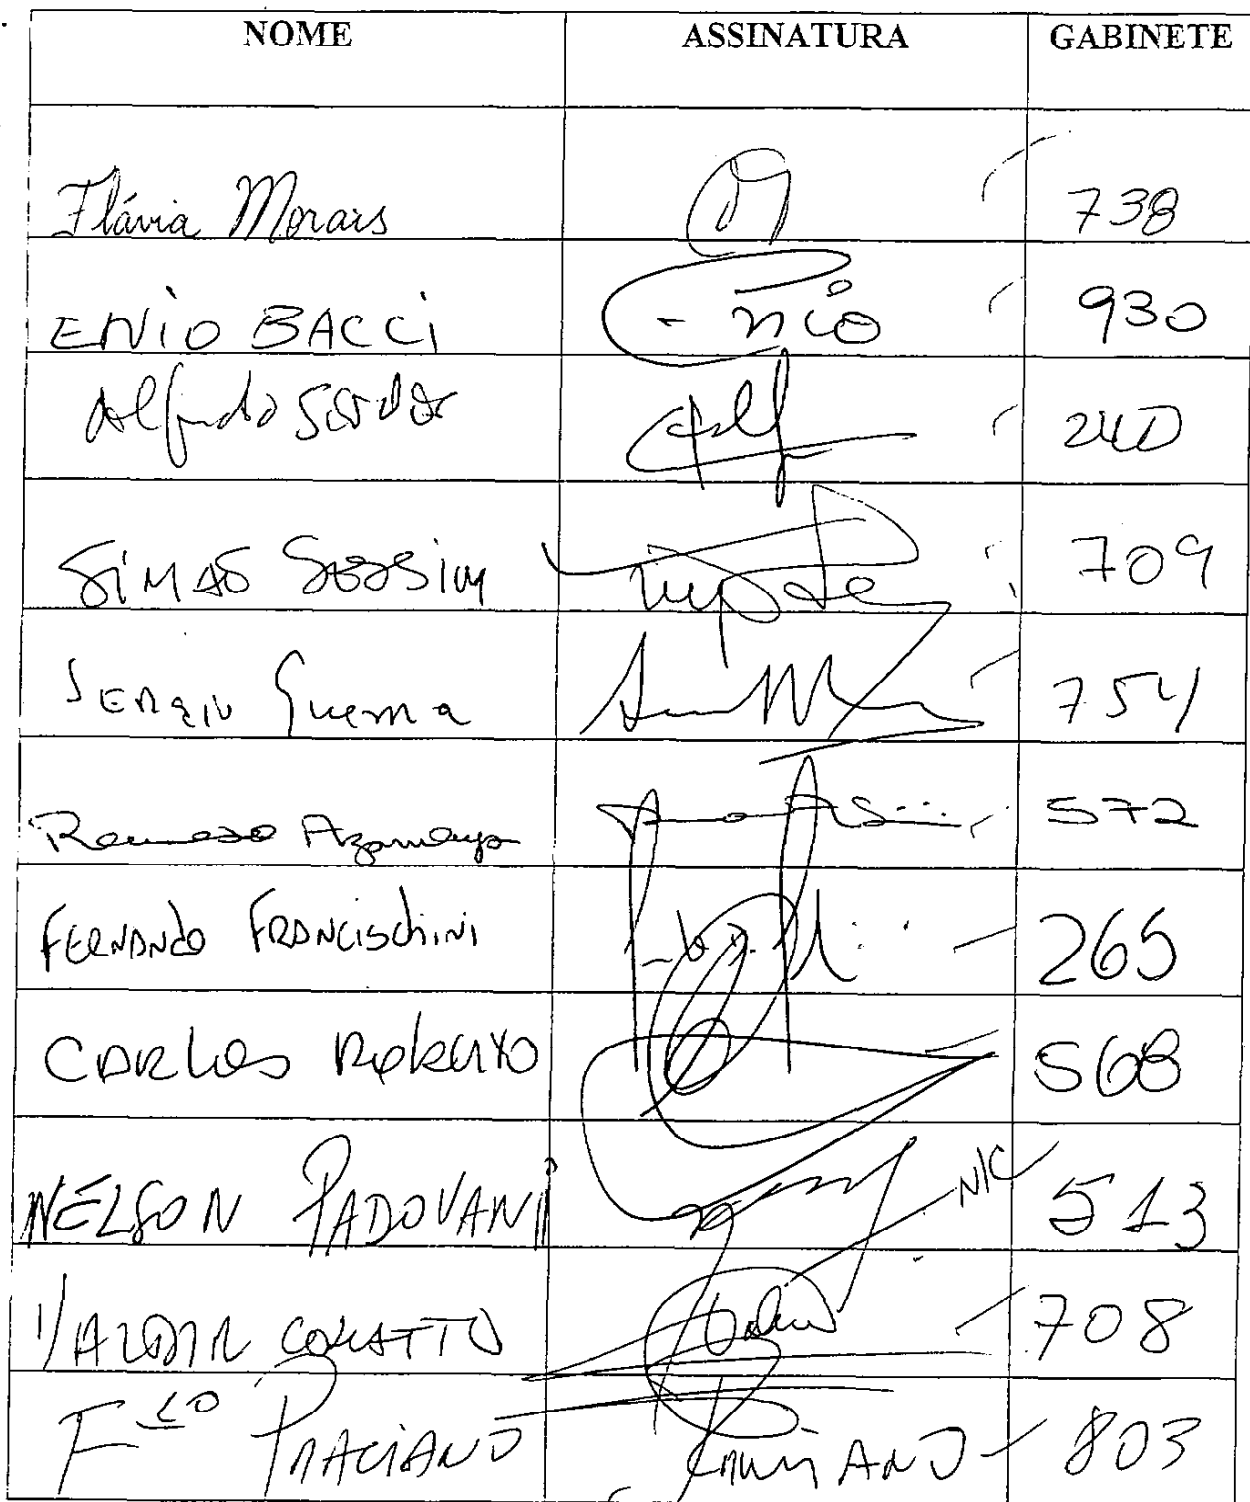 NOME ASSINATURA GABINETE
Flávia Morais 738
ENIO BACCI Enio 930
Alfredo 240
SIMÃO SESSIM 709
SERGIO Guerra 754
Azambuja 572
FERNANDO FRANCISCHINI 265
CARLOS Roberto 568
NELSON PADOVANI N/C 513
VALDIR COLATTO 708
Fco PRACIANO PRACIANO 803